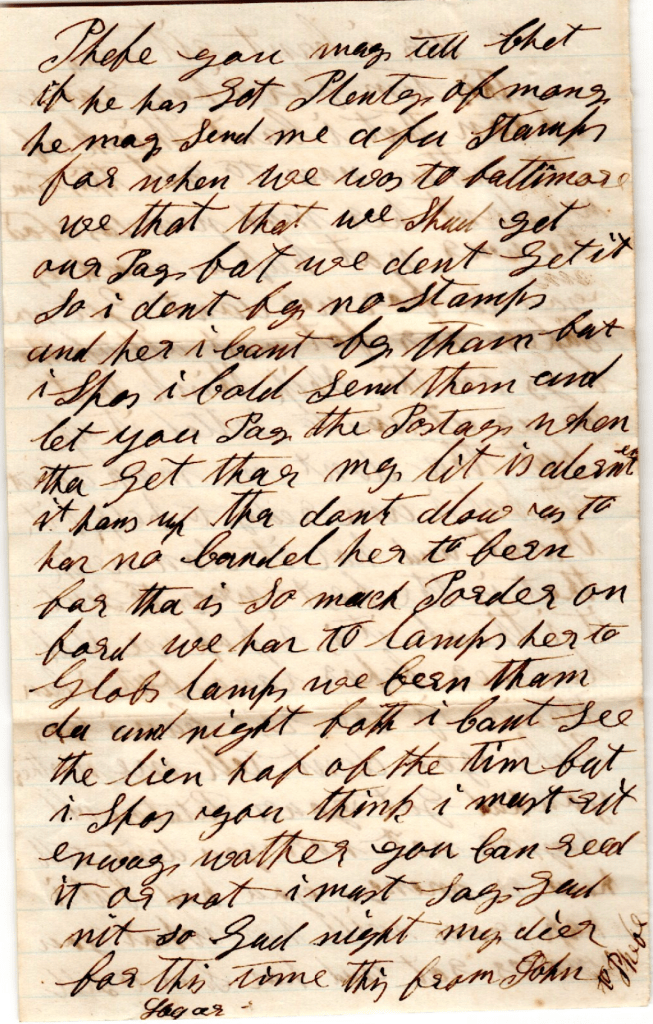 Phebe you may tell Chet
if he has Got Plenty of mony
he may Send me a fu Stamps
for when we was to battimore
we that that we Shud get
our Pay bat we dent Get it
So i dent by no Stamps
and her i cant by tham but
i Spos i cold Send them and
let you Pay the Postag when
tha Get thar my lit is
it hans up tha dont alow us to
hav no candel her to bern
for tha is So mach Poder on
bord we hav to lamps her to
Glob lamps we bern tham
da and night both i cant See
the lien haf of the tim but
i Spos you think i must rit
enway wather you can reed
it or not i must Say Gud
nit so Gud night my dier
for this time this from John
to Phebe